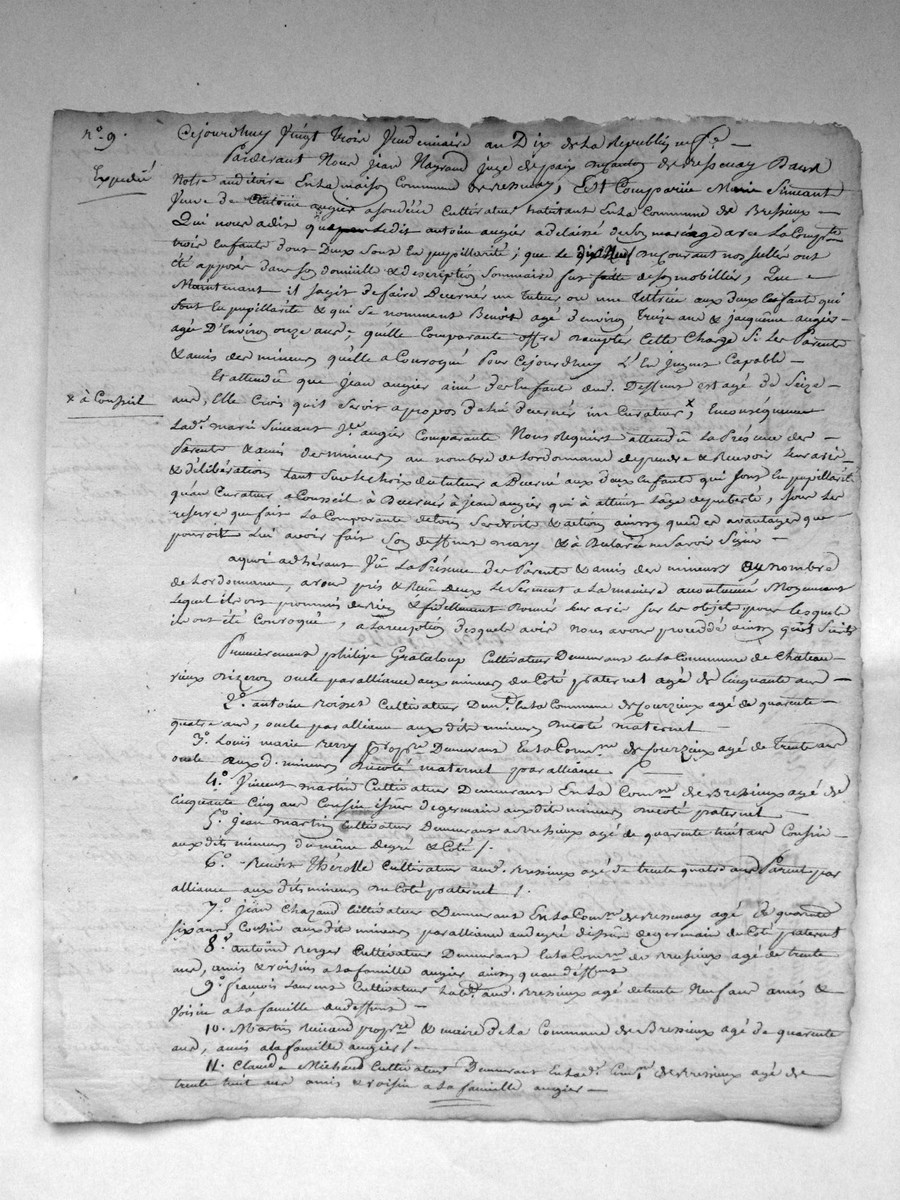 n.° 9.
Expedié
Cejourdhuy Vingt trois Vendemiaire an Dix de la Republique f.se —
Pardevant Nous jean Mayoud juge de paix du canton de Bessenay Dans
Notre auditoire En la maison Commune de Bessenay, Est Comparüe Marie Simeant
Veuve de antoine augier a son décès Cultivateur habitant En la Commune de Bressieux —
Qui nous a dit que ledit antoine augier a delaissé de son mariage avec la Comp.te
trois enfants dont Deux sont En pupillarité; que le dix Neuf du Courant nos scellés ont
été apposés dans son domicille & description Sommaire fut faitte de son mobillier, Que
Maintenant il s'agit de faire Decerner un tuteur ou une tutrice aux deux Enfants qui
sont En pupillarité & qui se nomment Benoit agé d'environ treize ans & jacqueme augier
agée D'Environ onze ans, qu'elle Comparante offre remplir Cette Charge Si les Parents
& amis des mineurs qu'elle a Convoqué Pour Cejourdhuy L'En jugent Capable —
Et attendû que jean augier ainé des Enfants aud. Deffunt est agé de Seize
ans, Elle Croit qu'il Seroit a propos de lui decerner un Curateur x, En conséquence
& à Conseil
Lad.e marie Simeant V.e augier Comparante Nous Requiert attendû La Présence des —
Parents & amis des mineurs au nombre de Lordonnance de prendre & Recevoir leur avis
& délibération tant Sur le choix du tuteur a Decerné aux deux Enfants qui sont En pupillarité
qu'au Curateur a Conseil à Decerner à jean augier qui à atteint l'age de puberté, sous les
reserves que fait La Comparante de tous Ses droits & actions ainsi que des avantages que
pourroit Lui avoir fait Son deffunt mary & à Déclaré ne Savoir Signé —
a quoi adhérant Vû La Présence des Parents & amis des mineurs au nombre
de Lordonnance, avons pris & Reçû Deux le Serment a la maniere accoutumée Moyennant
Lequel ils ont promis de bien & fidellement Donner leur avis sur les objets pour lesquels
ils ont été Convoqué, a la reception desquels avis nous avons procédé ainsi qu'il Suit
Premierement philipe Grataloup Cultivateur Demeurant En la Commune de Chateau-
vieux oncle par alliance aux mineurs du Coté paternel agé de Cinquante ans —
2.° antoine Cultivateur Dem.t En la Commune de Courzieux agé de quarente
quatre ans, oncle par alliance aux dits mineurs du coté maternel —
3.° Loüis marie Propre Demeurant En la Com.ne de Courzieux agé de trente ans
oncle auxd. mineurs Du coté maternel par alliance
4.° Vincent martin Cultivateur Demeurant En La Com.ne de Bressieux agé de
Cinquante Cinq ans Cousin issus de germain aux dits mineurs du coté paternel —
5.° jean martin Cultivateur Demeurant a Bressieux agé de quarente huit ans Cousin
aux dits mineurs du même degré & Coté /.
6.° Benoit Cultivateur aud. Bressieux agé de trente quatre ans Parent par
alliance aux dits mineurs du Coté paternel /.
7.° jean Chazaud Cultivateur Demeurant En la Com.ne de Bessenay agé de quarente
six ans, Cousin aux dits mineurs par alliance au degré dissus de germain du Coté paternel
8.° antoine Berger Cultivateur Demeurant En la Com.ne de Bressieux agé de trente
ans, amis & voisins a la famille augier ainsi que au dessus
9.° françois Laurent Cultivateur aud. Bressieux agé de trente Neuf ans amis &
Voisin a la famille au dessus —
10. Martin prop.re & maire de la Commune de Bressieux agé de quarente
ans, amis a la famille augier /.
11. Claude Michaud Cultivateur Demeurant En lad.e Com.ne de Bressieux agé de
trente huit ans amis & voisin a la famille augier —